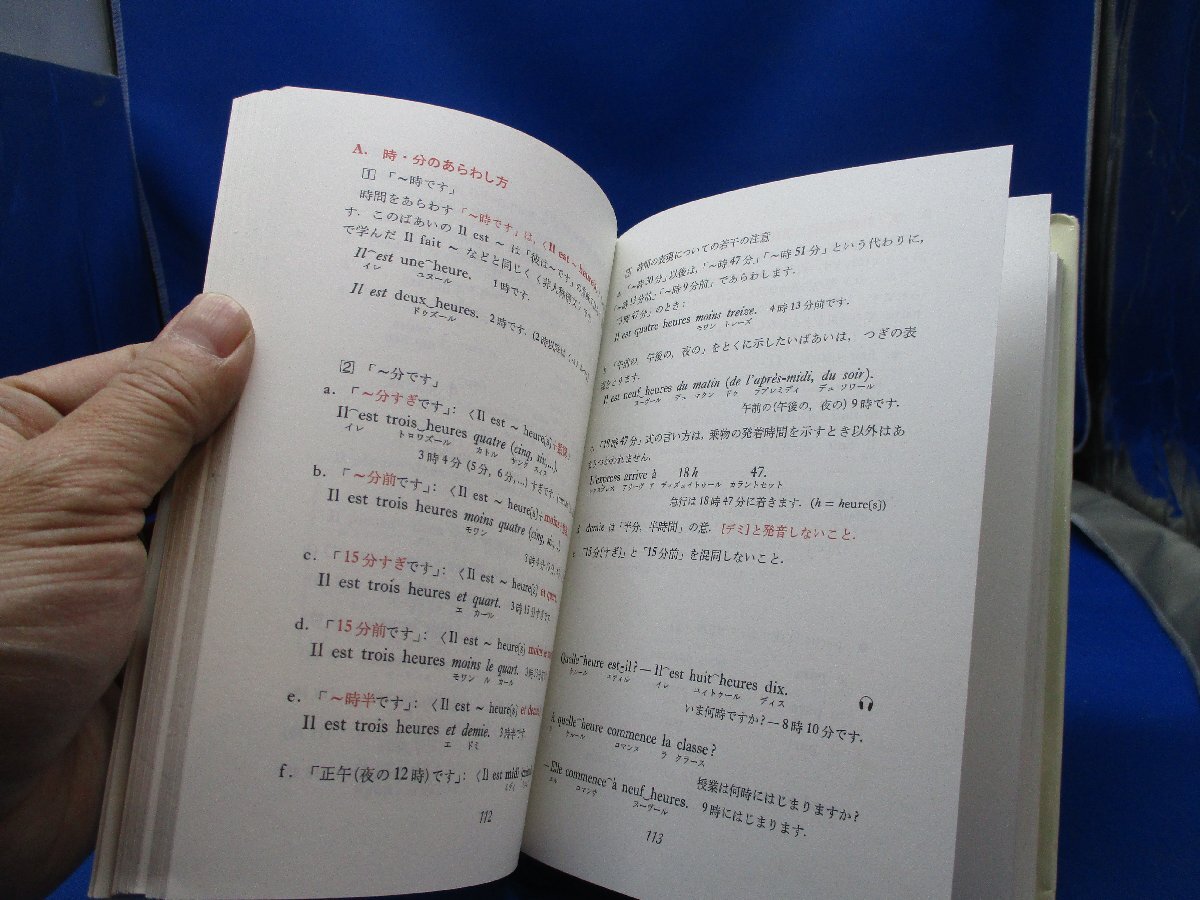 A. 時・分のあらわし方
1 「~時です」
時間をあらわす「~時です」は,〈Il est ~ heure
す. このばあいの Il est ~ は「彼は~です」の
で学んだ Il fait ~ などと同じく〈非人称構文〉
Il est une heure. 1時です.
イレ ユヌール
Il est deux heures. 2時です.
ドゥズール
2 「~分です」
a. 「~分すぎです」:〈Il est ~ heure(s)+
Il est trois heures quatre (cinq, six...).
イレ トロワズール カトル サンク スィス
3時4分(5分, 6分,...)すぎです.
b. 「~分前です」:〈Il est ~ heure(s)+moins+
Il est trois heures moins quatre (cinq, six...).
モワン
c. 「15分すぎです」:〈Il est ~ heure(s) et quart.
Il est trois heures et quart. 3時15分すぎです.
エ カール
d. 「15分前です」:〈Il est ~ heure(s) moins
Il est trois heures moins le quart.
モワン ル カール
e. 「~時半です」:〈Il est ~ heure(s) et demie
Il est trois heures et demie. 3時半です.
エ ドミ
f. 「正午(夜の12時)です」:〈Il est midi
ミディ
112
時の表現についての若干の注意
「~時30分」以後は,「~時47分」「~時51分」という代わりに,
「~時13分前」「~時9分前」であらわします.
「3時47分」のとき:
Il est quatre heures moins treize. 4時13分前です.
モワン トレーズ
「午前の, 午後の, 夜の」をとくに示したいばあいは, つぎの表
現をとります.
Il est neuf heures du matin (de l'après-midi, du soir).
ヌーヴール デュ マタン ドゥ ラプレミディ デュ ソワール
午前の(午後の, 夜の)9時です.
「18時47分」式の言い方は, 乗物の発着時間を示すとき以外はあ
まりつかわれません.
L'express arrive à 18 h 47.
レクスプレス アリーヴ ア ディズュイトゥール カラントセット
急行は18時47分に着きます. (h = heure(s))
demie は「半分, 半時間」の意. [デミ]と発音しないこと.
「15分(すぎ)」と「15分前」を混同しないこと.
Quelle heure est-il? — Il est huit heures dix.
ケルール エティル イレ ユイトゥール ディス
いま何時ですか?—8時10分です.
À quelle heure commence la classe?
ア ケルール コマンス ラ クラース
授業は何時にはじまりますか?
—Elle commence à neuf heures. 9時にはじまります.
エル コマンサ ヌーヴール
113